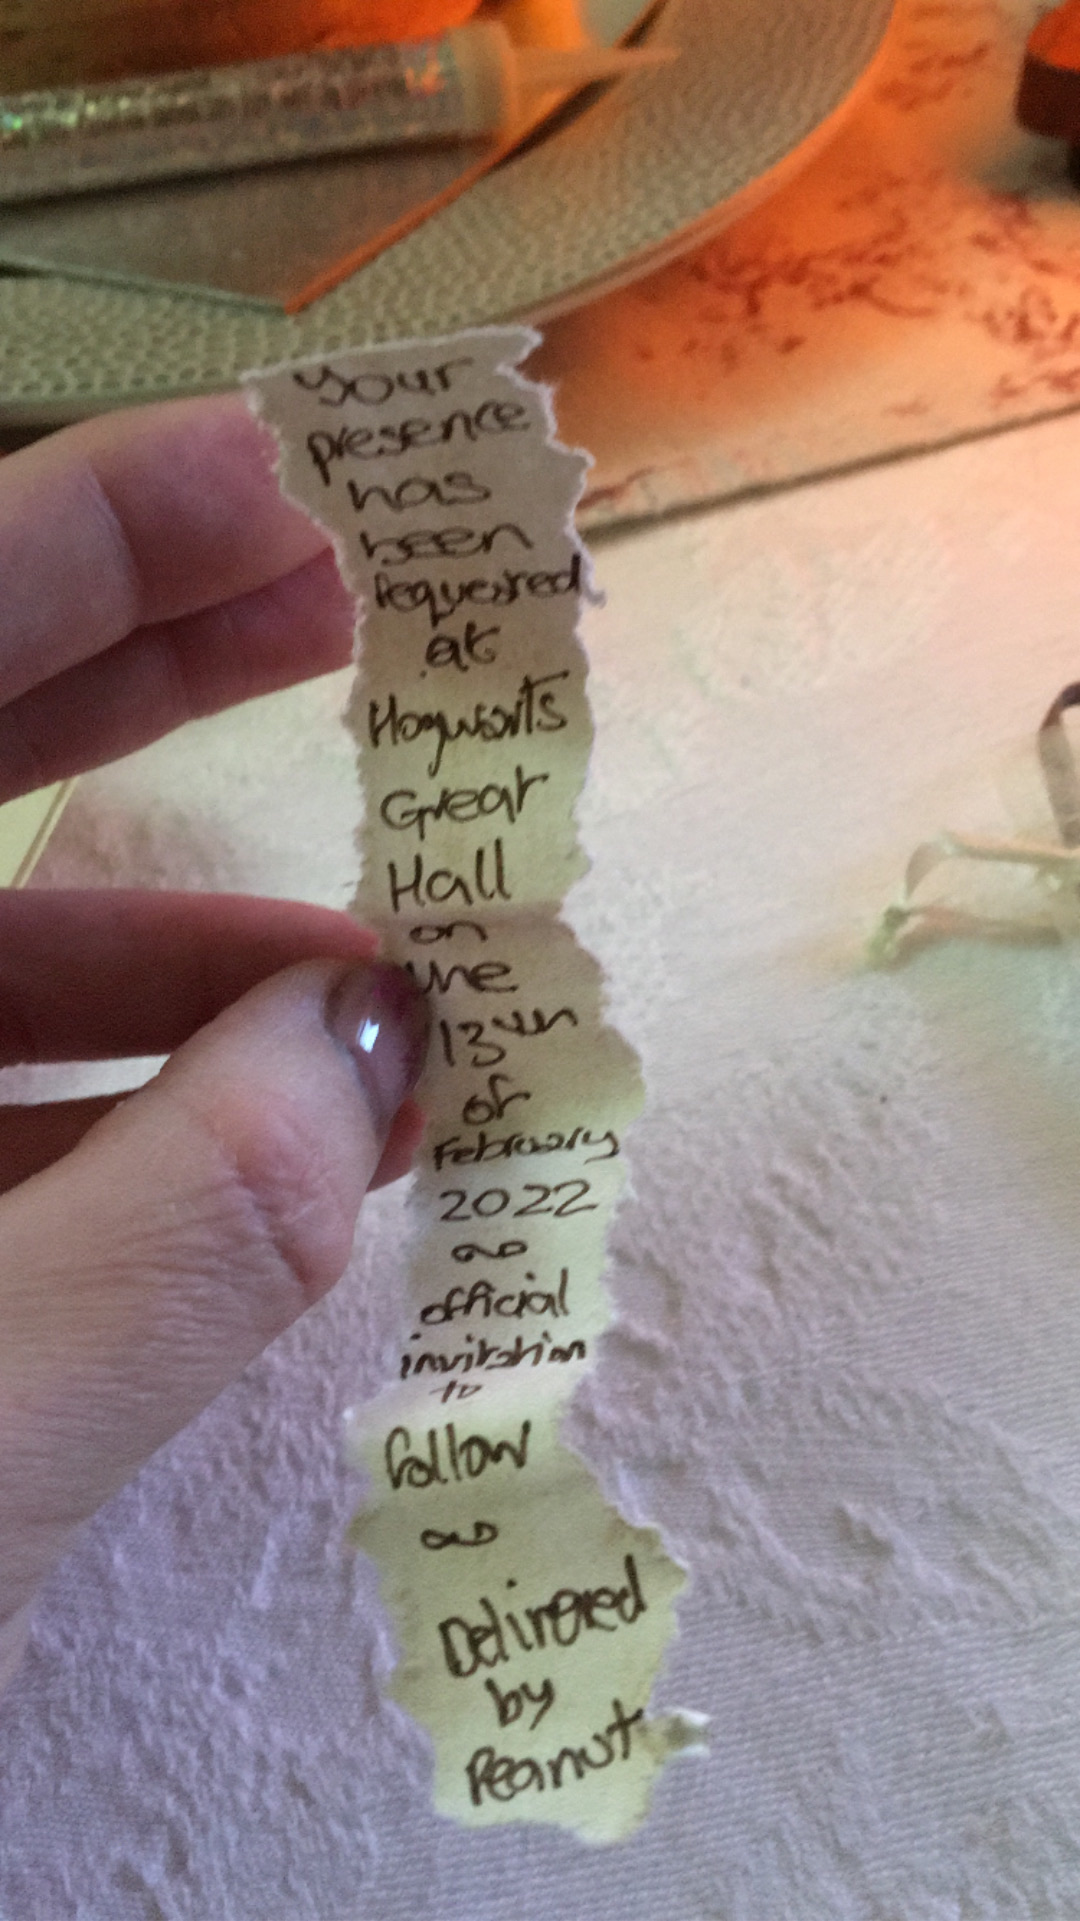 your
presence
has
been
requested
at
Hogwarts
Great
Hall
on
the
13th
of
February
2022
official
invitation
to
follow
Delivered
by
Peanut